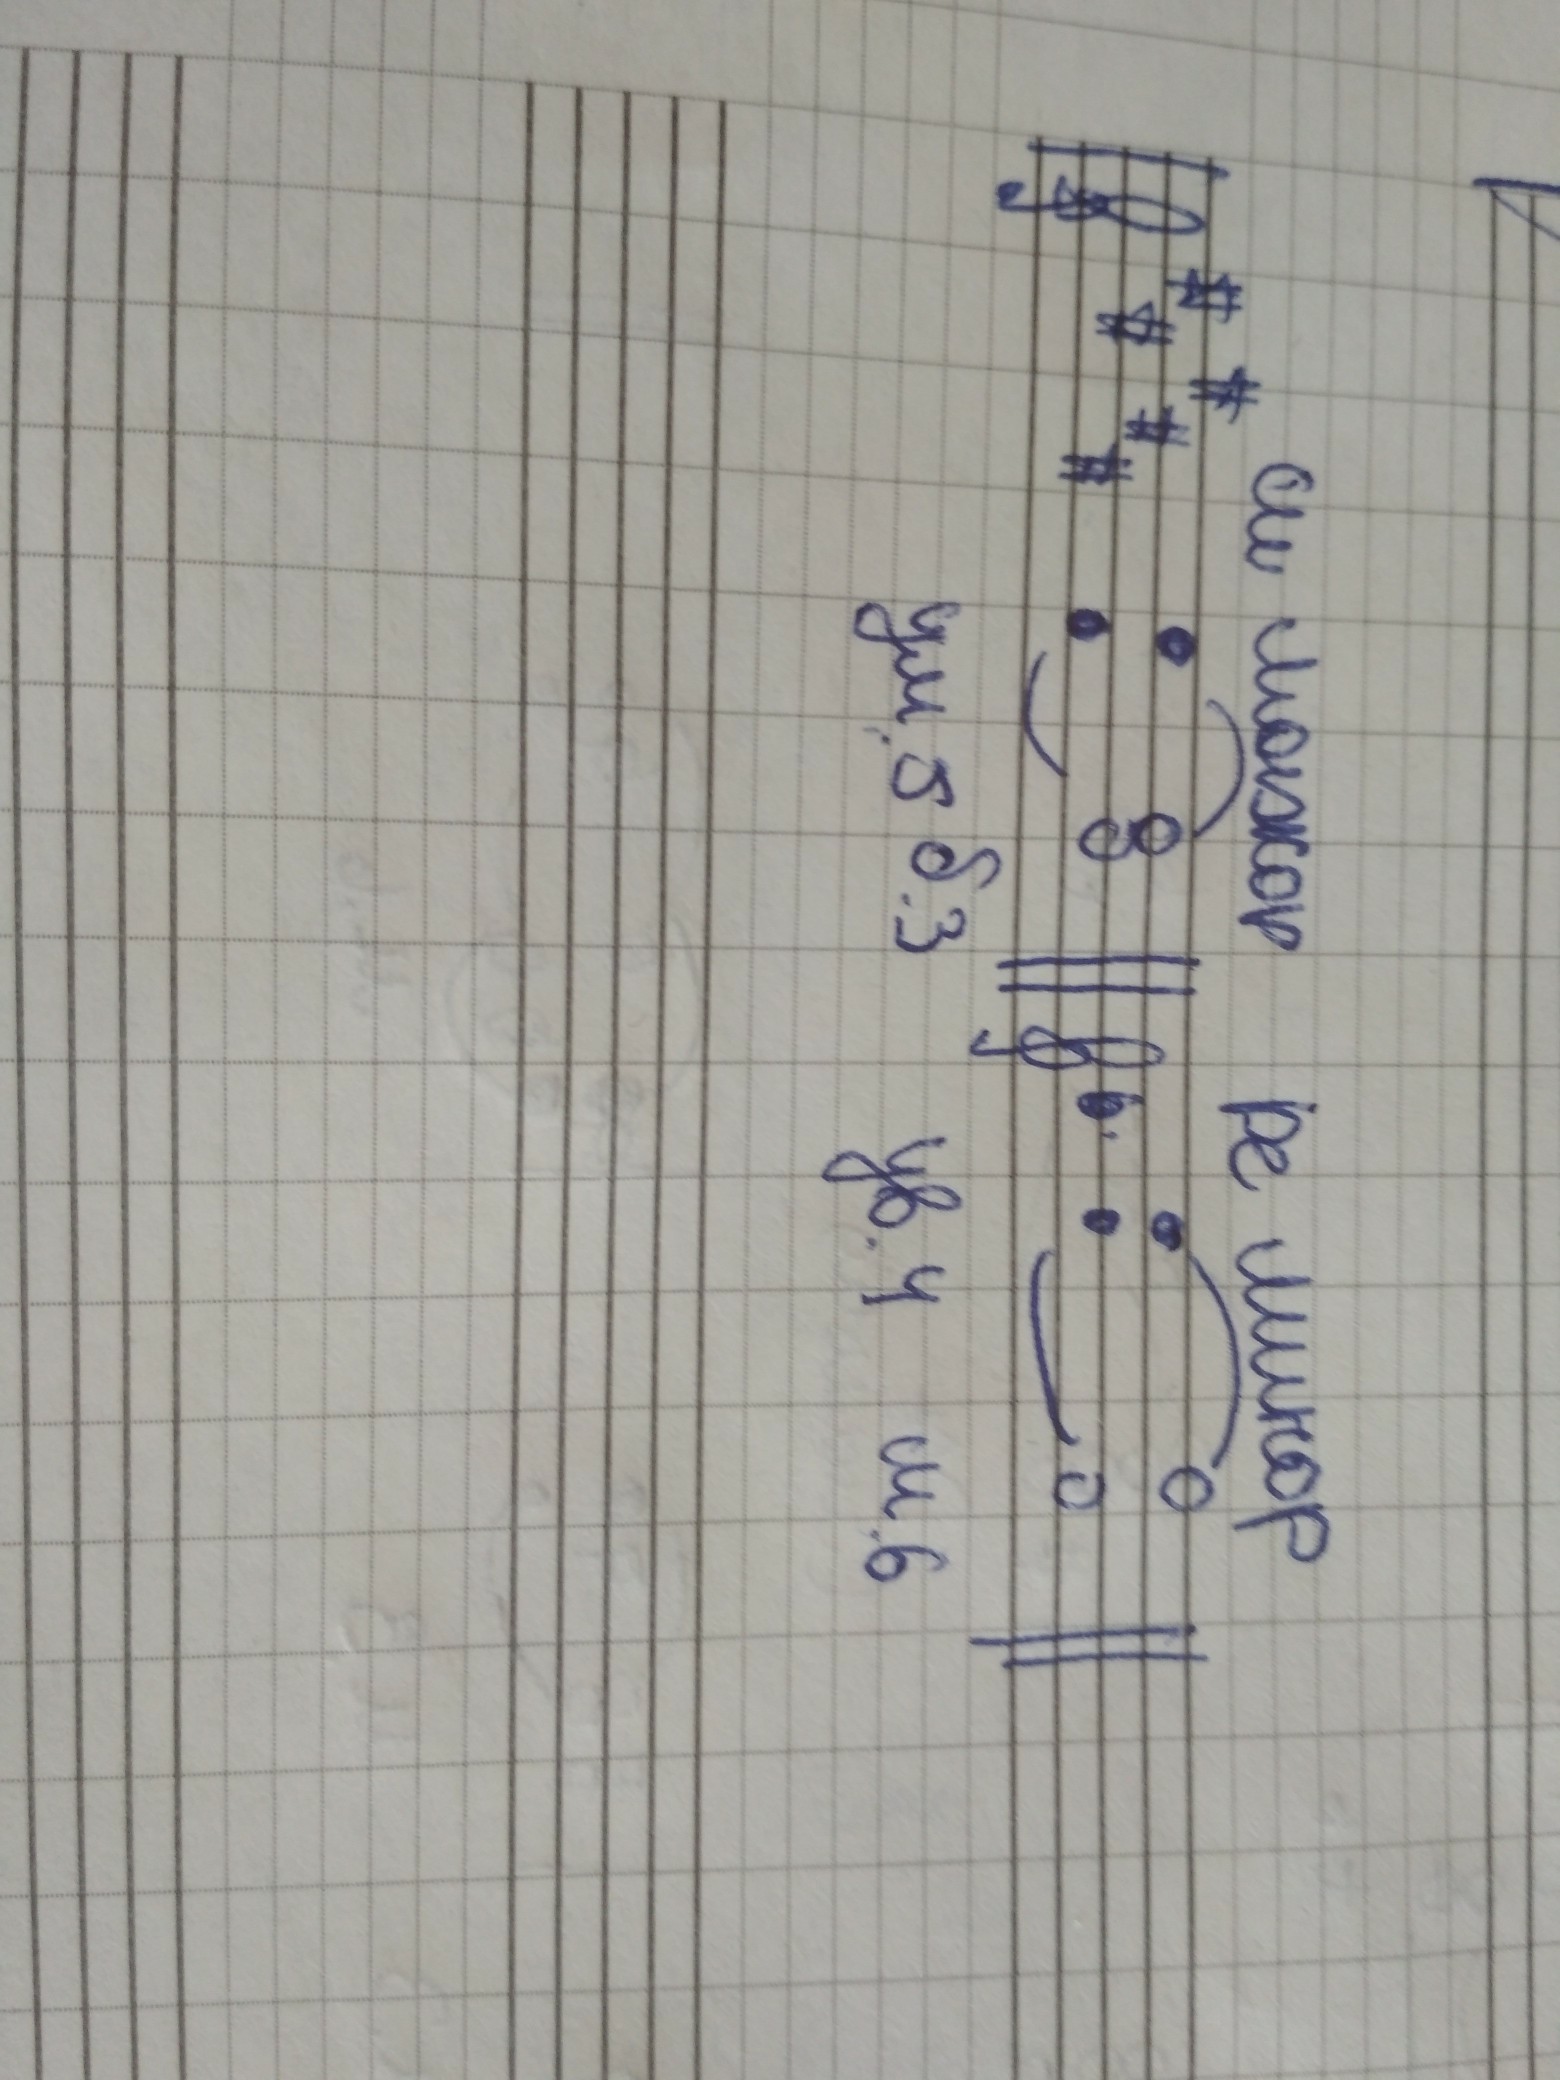 Си мажор Ре минор
ум. 5 б.3 ув. 4 м.6